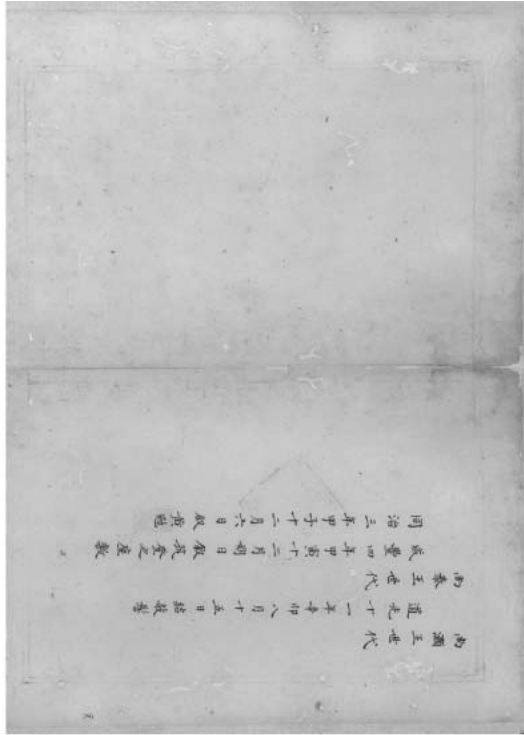 尚灝王世代
道光十一年辛卯八月十五日結敧髻
尚泰王世代
咸豐四年甲寅十二月朔日叙筑登之座敷
同治三年甲子十二月六日叙黄冠